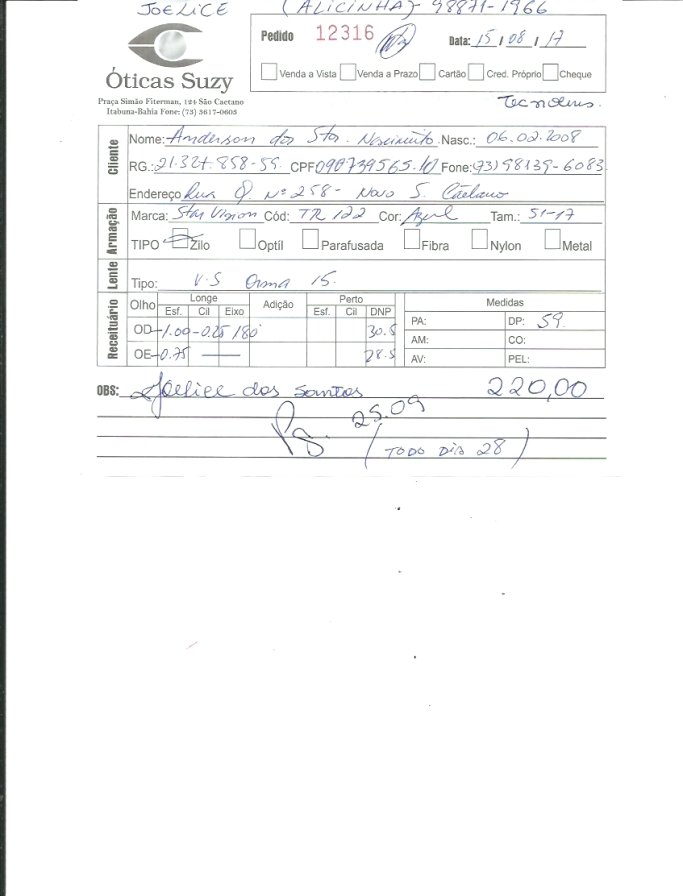 JOELICE (ALICINHA) 98871-1966
Pedido 12316 Data: 15 / 08 / 17
Venda a Vista Venda a Prazo Cartão Cred. Próprio Cheque
Óticas Suzy
Praça Simão Fiterman, 124 São Caetano
Itabuna-Bahia Fone: (73) 3617-0605
Tecnolens.
Cliente
Nome: Anderson dos Stos. Nascimento Nasc.: 06.02.2008
RG.: 21.327.858-59. CPF 090739565.10 Fone: (73) 98139-6083
Endereço Rua Q Nº 258 - Novo S. Caetano
Armação
Marca: Star Vision Cód: TR 122 Cor: Azul Tam.: 51-17
TIPO Zilo Optíl Parafusada Fibra Nylon Metal
Lente
Tipo: V.S Orma 15.
Receituário
Olho Longe Adição Perto Medidas
Esf. Cil Eixo Esf. Cil DNP
OD -1.00 -0.25 180° 30.5 PA: DP: 59
AM: CO:
OE -0.75 — 28.5 AV: PEL:
OBS: Joelice dos Santos 220,00
Pg. 25.09
(TODO DIA 28)